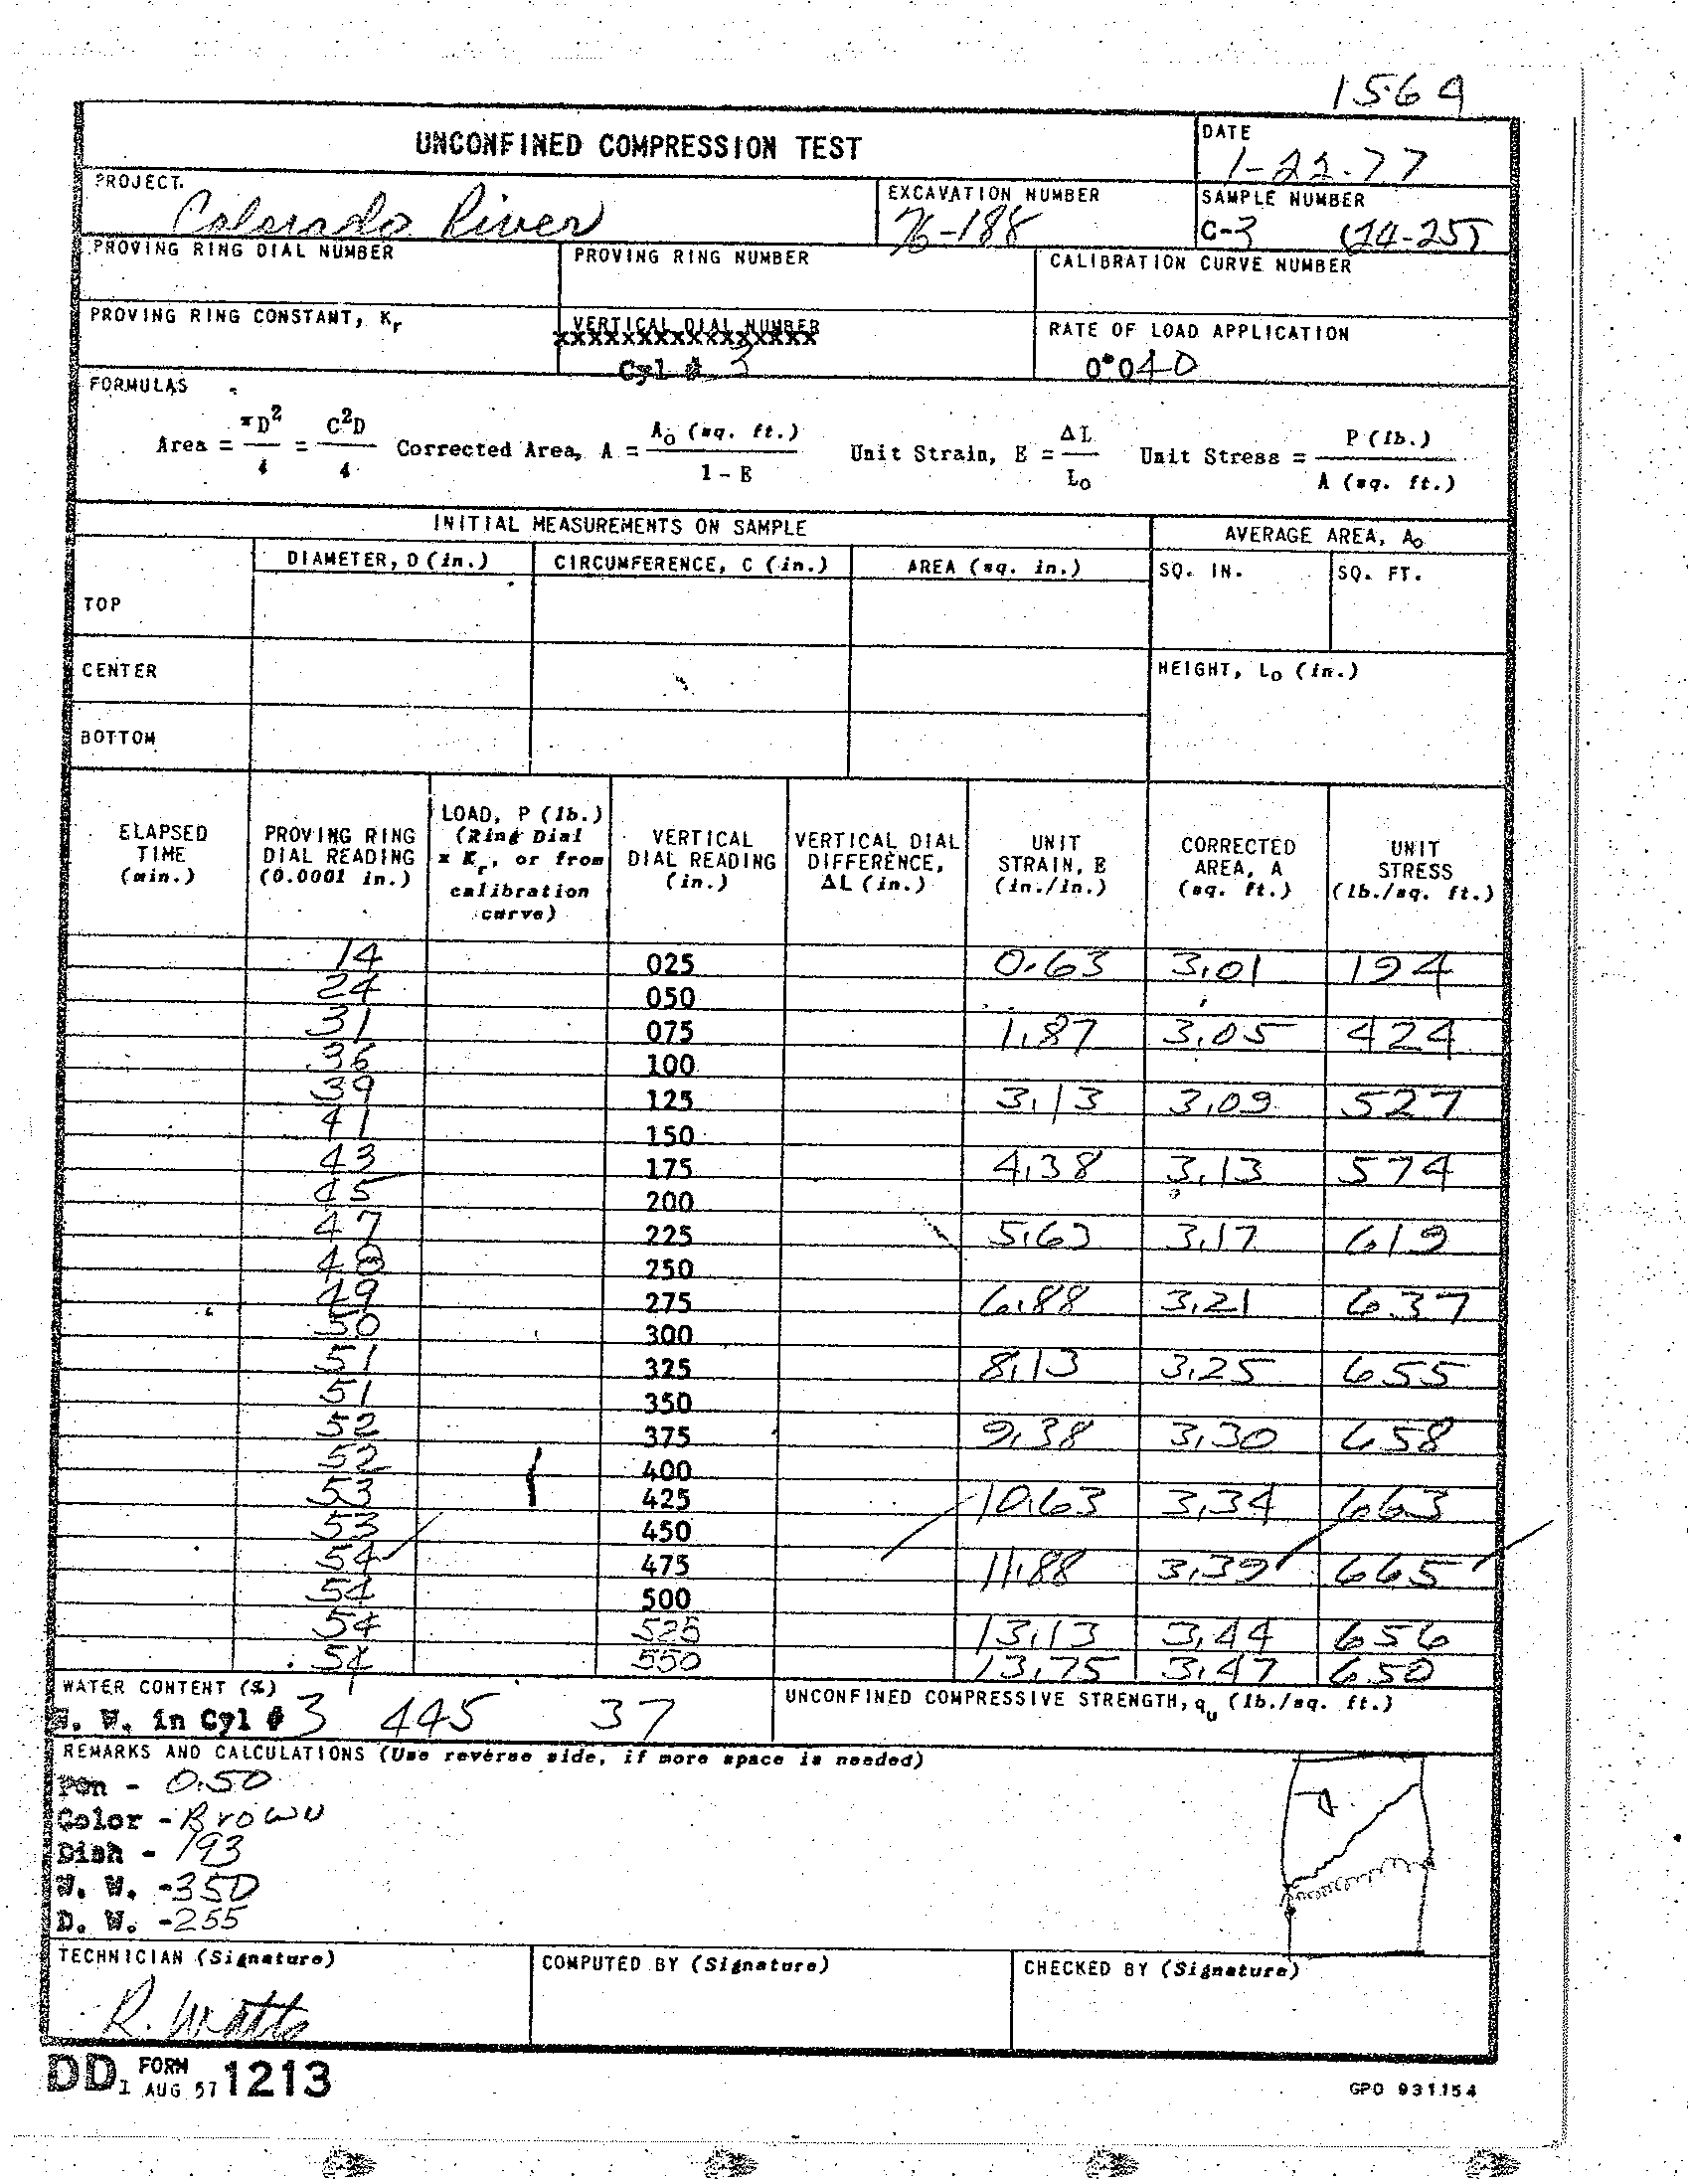 1564
UNCONFINED COMPRESSION TEST
DATE
1-22-77
PROJECT
Colorado River
EXCAVATION NUMBER
76-188
SAMPLE NUMBER
C-3 (24-25)
PROVING RING DIAL NUMBER
PROVING RING NUMBER
CALIBRATION CURVE NUMBER
PROVING RING CONSTANT, Kr
VERTICAL DIAL NUMBER
XXXXXXXXXXXXXXXXXX
Cyl # 3
RATE OF LOAD APPLICATION
0.040
FORMULAS
Area = πD²/4 = C²D/4 Corrected Area, A = Ao (sq. ft.)/1 - E Unit Strain, E = ΔL/Lo Unit Stress = P (lb.)/A (sq. ft.)
INITIAL MEASUREMENTS ON SAMPLE
AVERAGE AREA, Ao
DIAMETER, D (in.) CIRCUMFERENCE, C (in.) AREA (sq. in.) SQ. IN. SQ. FT.
TOP
CENTER
HEIGHT, Lo (in.)
BOTTOM
ELAPSED TIME (min.)
PROVING RING DIAL READING (0.0001 in.)
LOAD, P (lb.) (Ring Dial x Kr, or from calibration curve)
VERTICAL DIAL READING (in.)
VERTICAL DIAL DIFFERENCE, ΔL (in.)
UNIT STRAIN, E (in./in.)
CORRECTED AREA, A (sq. ft.)
UNIT STRESS (lb./sq. ft.)
14 025 0.63 3.01 194
24 050
31 075 1.87 3.05 424
36 100
39 125 3.13 3.09 527
41 150
43 175 4.38 3.13 574
45 200
47 225 5.63 3.17 619
48 250
49 275 6.88 3.21 637
50 300
51 325 8.13 3.25 655
51 350
52 375 9.38 3.30 658
52 400
53 425 10.63 3.34 663
53 450
54 475 11.88 3.39 665
54 500
54 525 13.13 3.44 656
54 550 13.75 3.47 650
WATER CONTENT (%)
W. W. in Cyl # 3 445 37
UNCONFINED COMPRESSIVE STRENGTH, qu (lb./sq. ft.)
REMARKS AND CALCULATIONS (Use reverse side, if more space is needed)
Pen - 0.50
Color - Brown
Dish - 193
W. W. - 350
D. W. - 255
TECHNICIAN (Signature)
R. Watts
COMPUTED BY (Signature)
CHECKED BY (Signature)
DD FORM 1 AUG 57 1213
GPO 931154